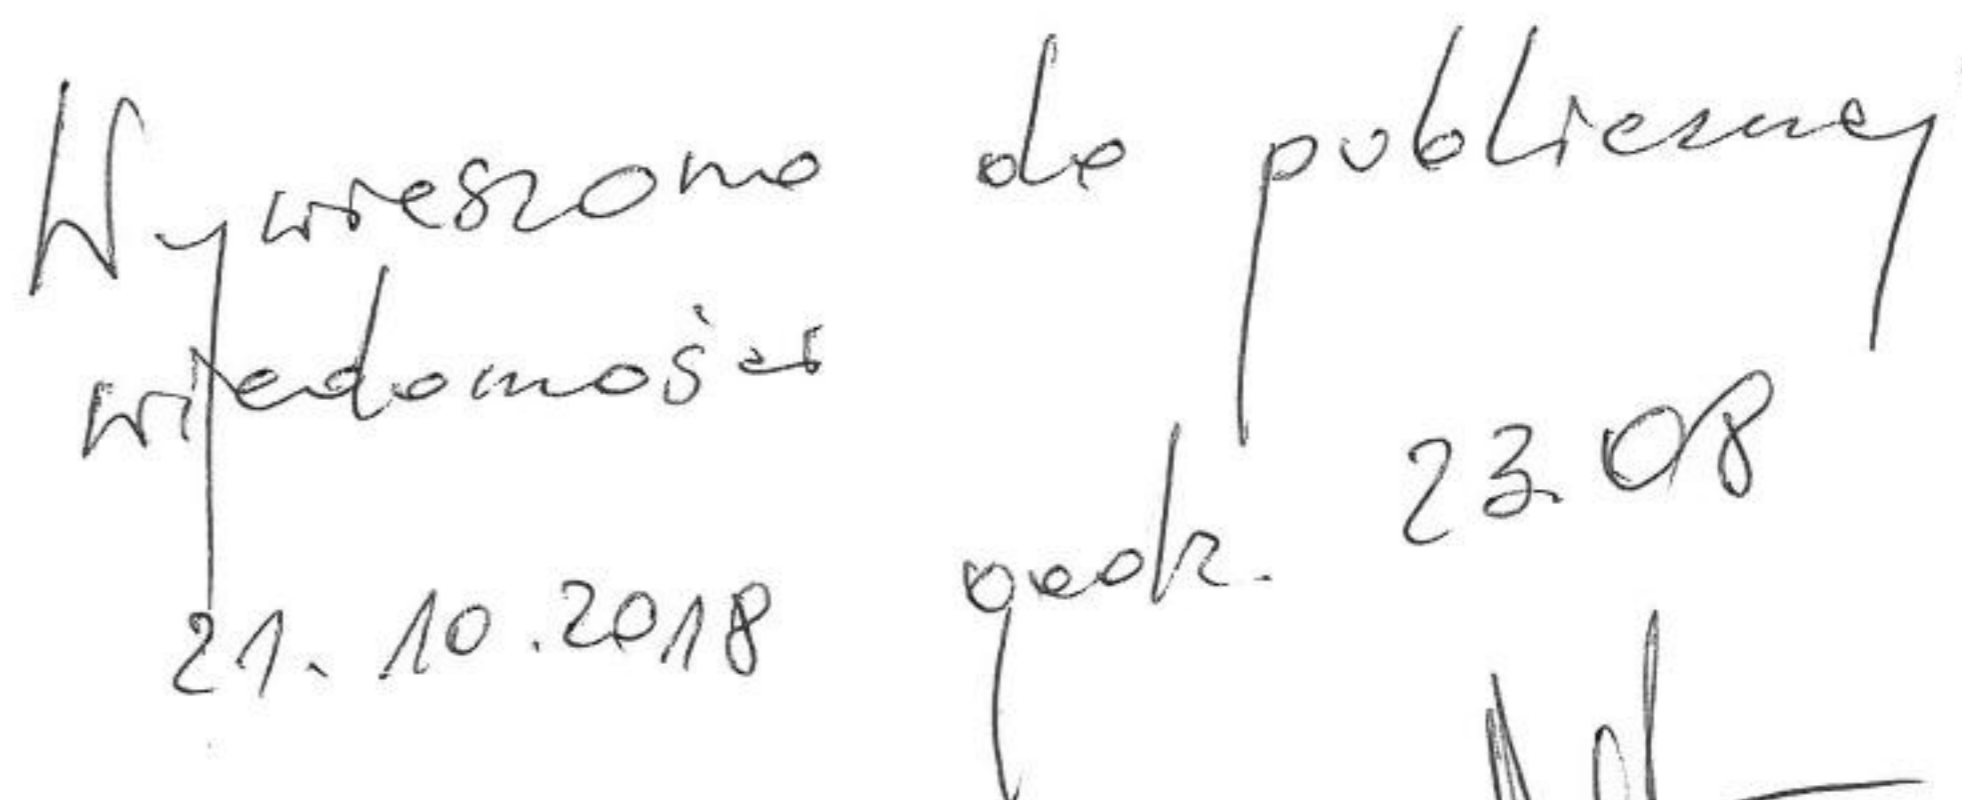 Wywieszono do publicznej
wiadomości
21.10.2018 godz. 23.08